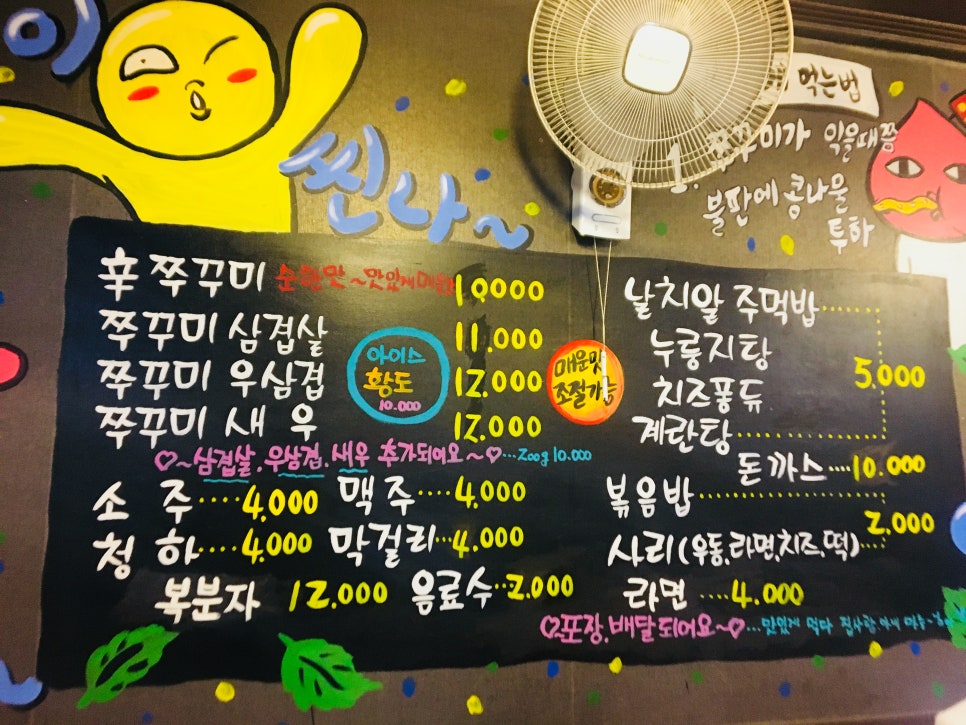 이
씬나~
먹는법
1. 쭈꾸미가 익을때쯤
불판에 콩나물
투하
辛 쭈꾸미 순한맛~맛있게 10,000
쭈꾸미 삼겹살 11.000
쭈꾸미 우삼겹 12.000
쭈꾸미 새우 12.000
아이스
황도
10.000
매운맛
조절가능
♡~삼겹살.우삼겹.새우 추가되어요~♡...200g 10.000
소주....4.000 맥주....4.000
청하....4.000 막걸리...4.000
복분자 12.000 음료수..2.000
날치알 주먹밥
누룽지탕
치즈퐁듀
계란탕
5.000
돈까스....10.000
볶음밥
사리(우동,라면,치즈,떡)
2.000
라면 ....4.000
♡포장,배달되어요~♡...맛있게 먹다 집사람,아이